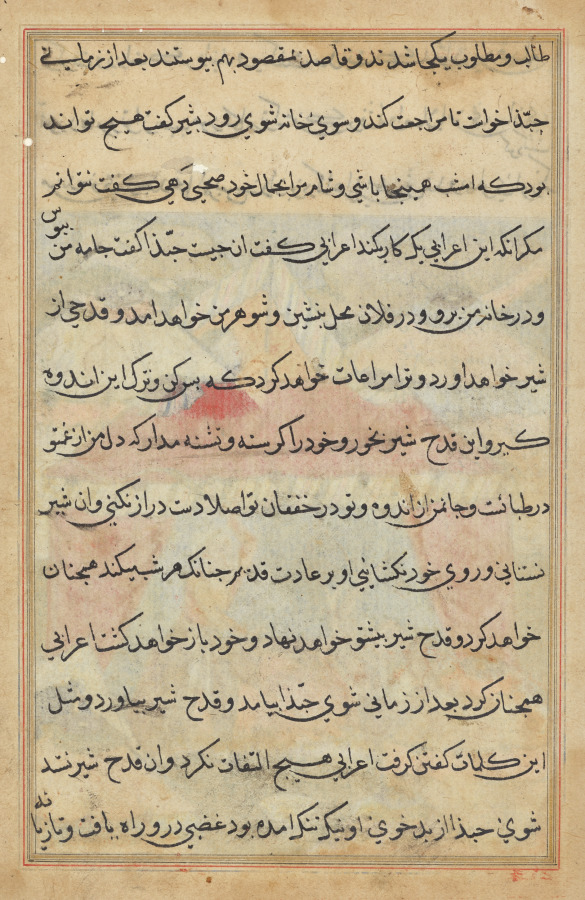 طالب و مطلوب یکجا شدند و قاصد و مقصود بهم پیوستند بعد از زمانی
حبّذا خواست تا مراجعت کند و سوی خانه شوی رود بشیر کفت هیچ تواند
بود که امشب همینجا باشی و شام مرا بجمال خود صحبی دهی کفت نتوانم
مکر آنکه این اعرابی یک کار بکند اعرابی کفت ان چیست حبّذا کفت جامه من بپوش
و در خانه من برو و در فلان محل بنشین و شوهر من خواهد امد و قدحی از
شیر خواهد اورد و ترا مراعات خواهد کرد که بس کن و ترک این اندوه
کیر و این قدح شیر بخور و خود را کرسنه و تشنه مدار که دل من از غم تو
در طبانست و جان من از اندوه تو در خفقان تو اصلا دست دراز نکنی و ان شیر
نستانی و روی خود نکشائی او بر عادت قدیم چنانک هر شب میکند همچنان
خواهد کرد و قدح شیر پیش تو خواهد نهاد و خود باز خواهد کشت اعرابی
همچنان کرد بعد از زمانی شوی حبّذا بیامد و قدح شیر بیاورد و مثل
این کلمات کفتن کرفت اعرابی هیچ التفات نکرد و ان قدح شیر نستد
شوی حبذا از بدخوی او نیک تنک امده بود غضبی در و راه یافت و تازیانه